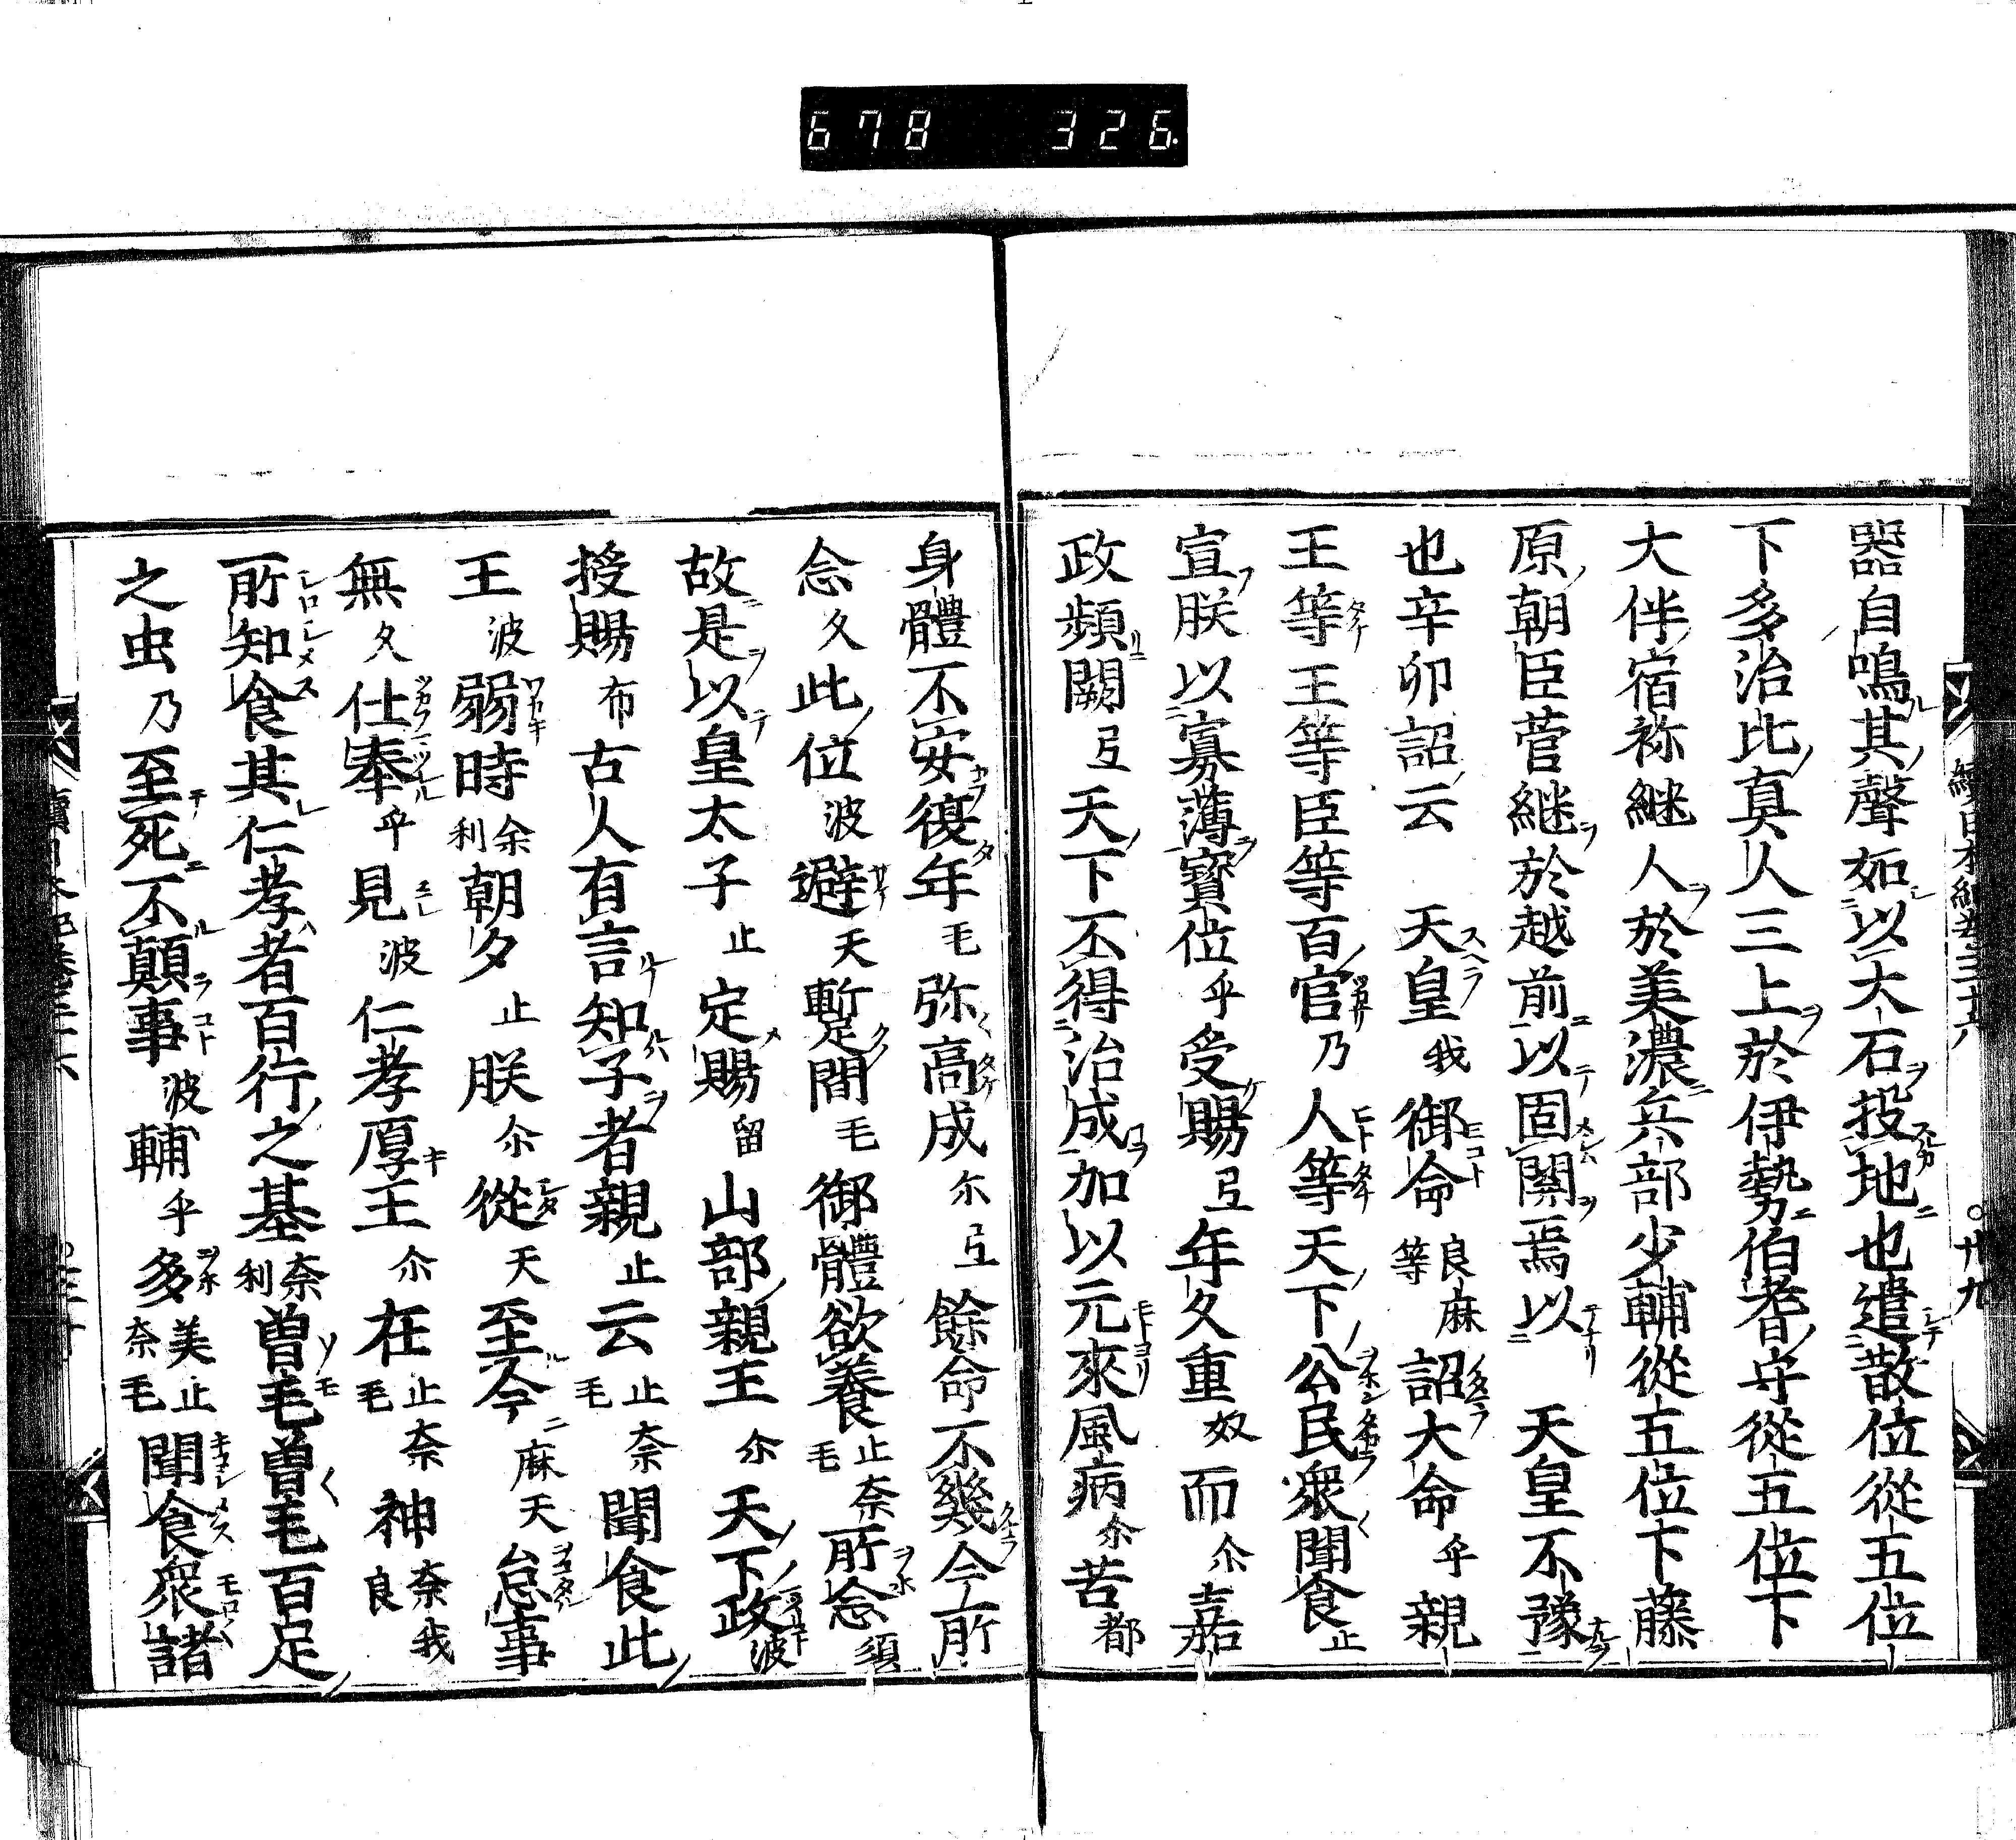 678 326.
器自鳴其聲如以大石投地也遣散位從五位
下多治比真人三上於伊勢伯耆守從五位下
大伴宿祢継人於美濃兵部少輔從五位下藤
原朝臣菅継於越前以固關焉以 天皇不豫
也辛卯詔云 天皇我御命良麻等詔大命乎親
王等王等臣等百官乃人等天下公民衆聞食止
宣朕以寡薄寳位乎受賜弖年久重奴而尓嘉
政頻闕弖天下不得治成加以元來風病尓苦都
身體不安復年毛弥高成尓弖餘命不幾今所
念久此位波避天暫間毛御體欲養止奈毛所念須
故是以皇太子止定賜留山部親王尓天下政波
授賜布古人有言知子者親止云止奈毛聞食此
王波弱時余利朝夕止朕尓從天至今麻天怠事
無久仕奉乎見波仁孝厚王尓在止奈毛神奈我良
所知食其仁孝者百行之基奈利曽毛曽毛百足
之虫乃至死不顛事波輔乎多美止奈毛聞食衆諸